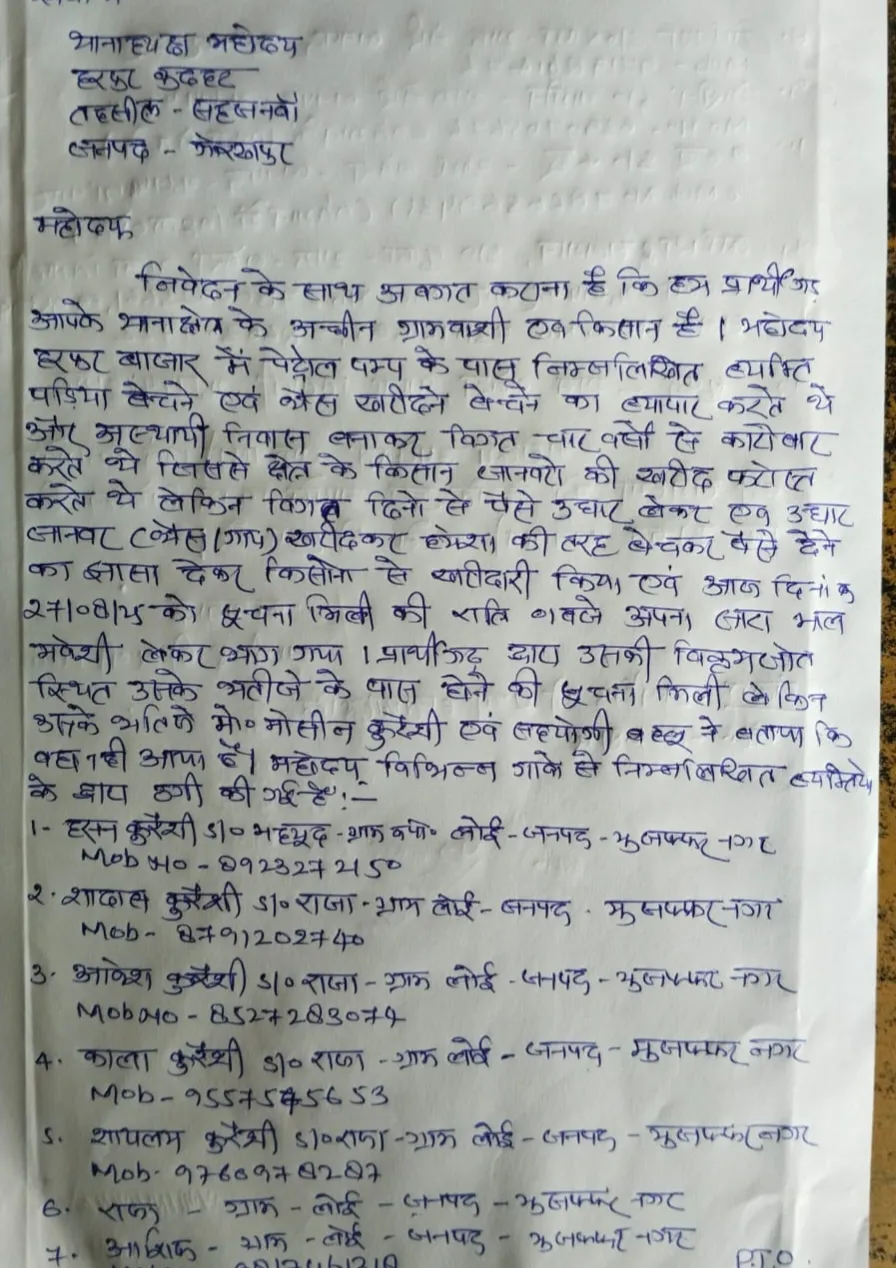 थानाध्यक्ष महोदय
हरपुर बुदहट
तहसील - सहजनवाँ
जनपद - गोरखपुर
महोदय,
निवेदन के साथ अवगत कराना है कि हम प्रार्थीगण
आपके थानाक्षेत्र के अन्तीन ग्रामवाशी एवं किसान है । महोदय
हरपुर बाजार में पेट्रोल पम्प के पास निम्नलिखित व्यक्ति
पड़िया बेचने एवं भैस खरीदने बेचने का व्यापार करते थे
और अस्थायी निवास बनाकर विगत चार वर्षों से कारोबार
करते थे जिससे क्षेत्र के किसान जानवरो की खरीद फरोख्त
करते थे लेकिन विगत दिनो से पैसे उधार लेकर एवं उधार
जानवर (भैस/गाय) खरीदकर हमेशा की तरह बेचकर पैसे देने
का झासा देकर किसानो से खरीदारी किया एवं आज दिनांक
27/08/25 को सूचना मिली की रात्रि 9 बजे अपना सारा माल
मवेशी लेकर भाग गया । प्रार्थीगढ़ द्वारा उसकी विक्रमजोत
स्थित उसके भतीजे के पास होने की सूचना मिली लेकिन
उसके भतिजे मो० मोसीन कुरैशी एवं सहयोगी बहलू ने बताया कि
वहा नही आया है। महोदय, विभिन्न गाके से निम्नलिखित व्यक्तियो
के द्वारा ठगी की गई है :-
1- हसन कुरैशी S/o महमूद - ग्राम व पो० लोई - जनपद - मुजफ्फर नगर
Mob No - 8923272150
2. शादाब कुरैशी S/o राजा - ग्राम लोई - जनपद - मुजफ्फर नगर
Mob - 8791202740
3. आवेश कुरैशी S/o राजा - ग्राम लोई - जनपद - मुजफ्फर नगर
Mob No - 8527283074
4. काला कुरैशी S/o राजा - ग्राम लोई - जनपद - मुजफ्फर नगर
Mob - 9557545653
5. शायलम कुरैशी S/o राजा - ग्राम लोई - जनपद - मुजफ्फर नगर
Mob - 9760978287
6. राजा - ग्राम - लोई - जनपद - मुजफ्फर नगर
7. आशिक - ग्राम - लोई - जनपद - मुजफ्फर नगर
P.T.O.